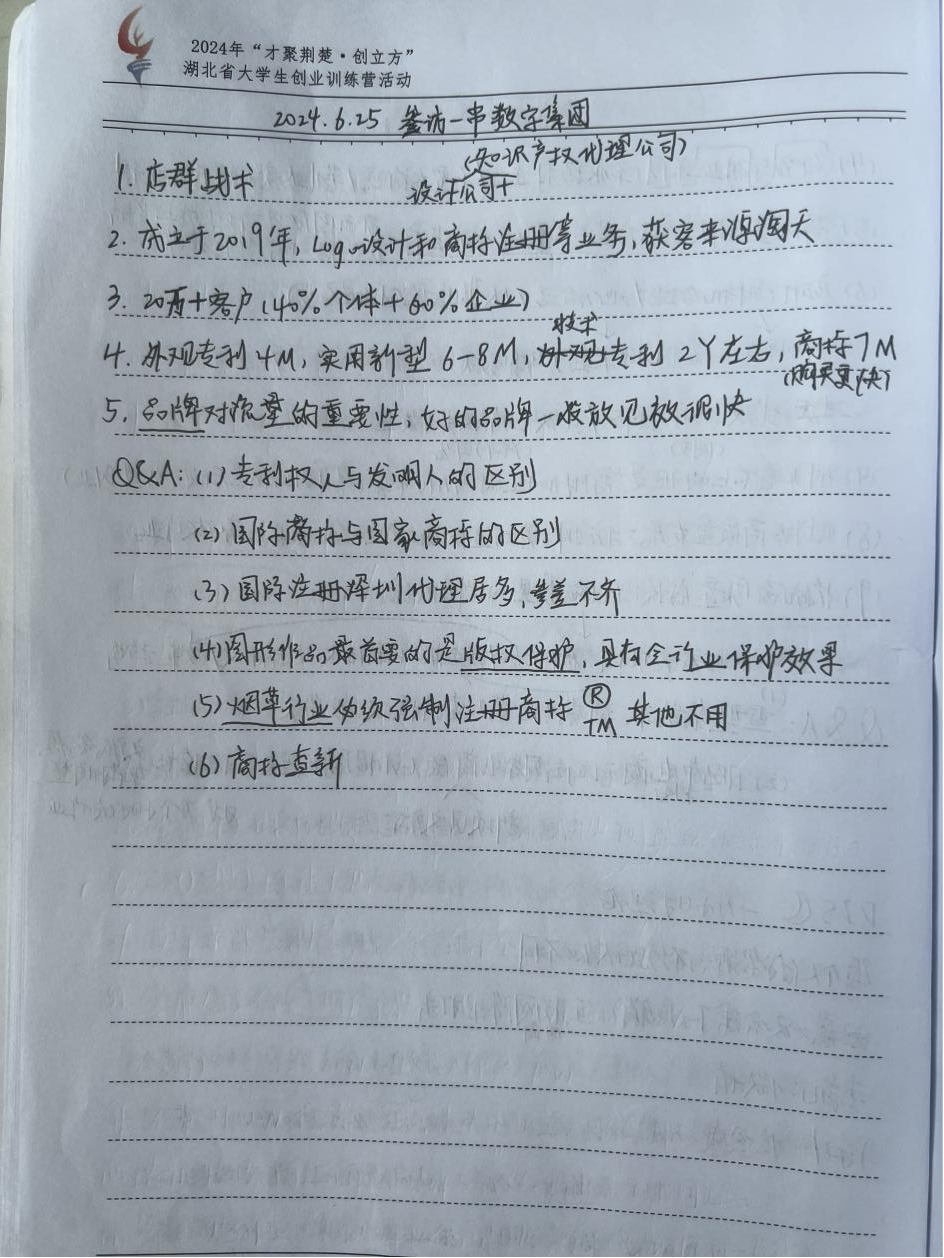 2024年“才聚荆楚·创立方”
湖北省大学生创业训练营活动
2024.6.25 鉴访一串数字集团
(知识产权代理公司)
1. 店群战术
设计公司+
2. 成立于2019年, Logo设计和商标注册等业务, 获客来源淘天
3. 20万+客户 (40%个体+60%企业)
技术
4. 外观专利4M, 实用新型 6-8M, 外观专利 2Y左右, 商标7M
(购买更快)
5. 品牌对流量的重要性, 好的品牌一般放见效很快
Q&A: (1) 专利权人与发明人的区别
(2) 国际商标与国家商标的区别
(3) 国际注册深圳代理居多, 参差不齐
(4) 图形作品最首要的是版权保护, 具有全行业保护效果
(5) 烟草行业必须强制注册商标 ® TM 其他不用
(6) 商标查新